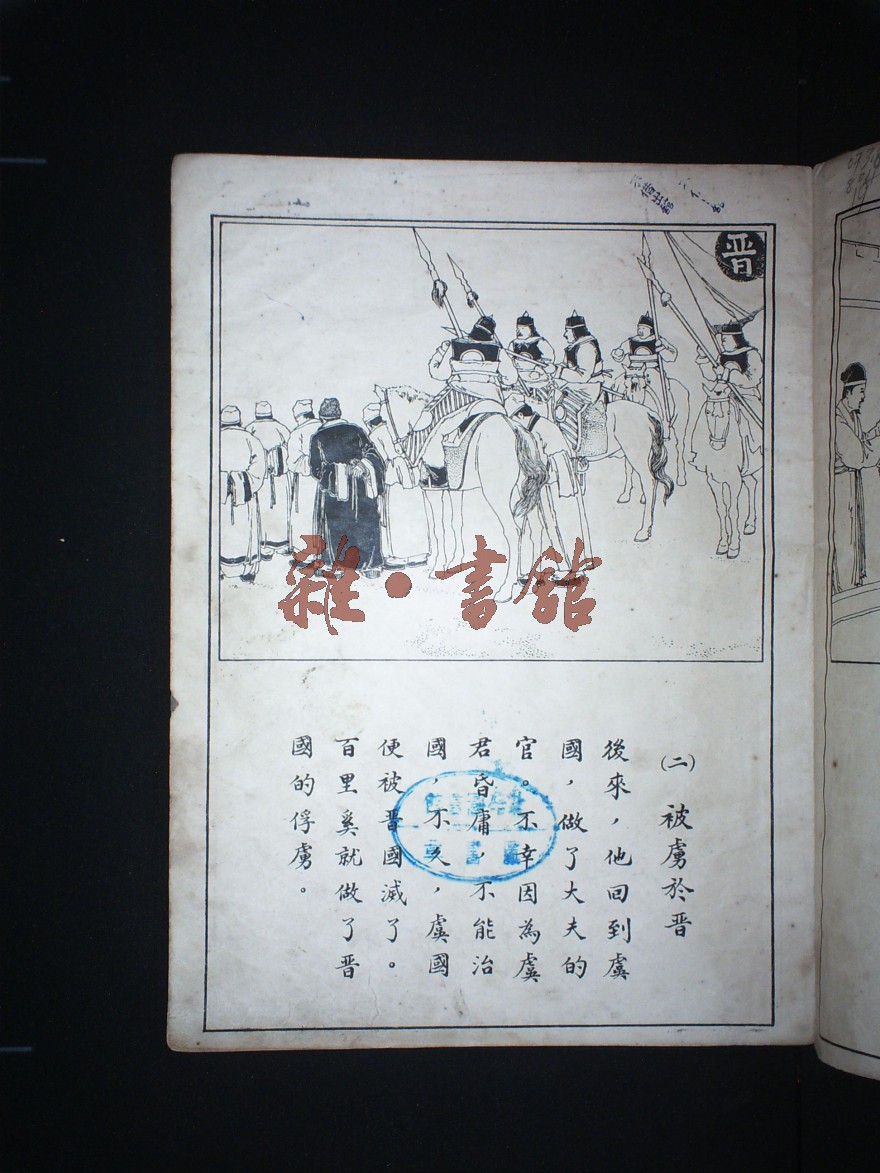 晋
雜·書館
㈡ 被虜於晋
後來，他回到虞
國，做了大夫的
官。不幸因為虞
君昏庸，不能治
國，不久，虞國
便被晋國滅了。
百里奚就做了晋
國的俘虜。